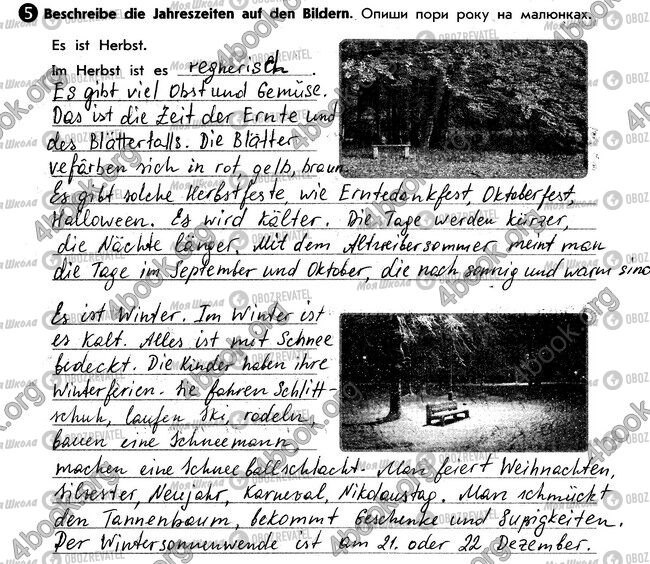 5 Beschreibe die Jahreszeiten auf den Bildern. Опиши пори року на малюнках.
Es ist Herbst.
Im Herbst ist es regnerisch.
Es gibt viel Obst und Gemüse.
Das ist die Zeit der Ernte und
des Blätterfalls. Die Blätter
vefärben sich in rot, gelb, braun.
Es gibt solche Herbstfeste, wie Erntedankfest, Oktoberfest,
Halloween. Es wird kälter. Die Tage werden kürzer,
die Nächte länger. Mit dem Altweibersommer meint man
die Tage im September und Oktober, die noch sonnig und warm sind
Es ist Winter. Im Winter ist
es kalt. Alles ist mit Schnee
bedeckt. Die Kinder haben ihre
Winterferien. Sie fahren Schlitt-
schuh, laufen Ski, rodeln,
bauen eine Schneemann,
machen eine Schneeballschlacht. Man feiert Weihnachten,
Silvester, Neujahr, Karneval, Nikolaustag. Man schmückt
den Tannenbaum, bekommt Geschenke und Süßigkeiten.
Der Wintersonnenwende ist am 21. oder 22 Dezember.